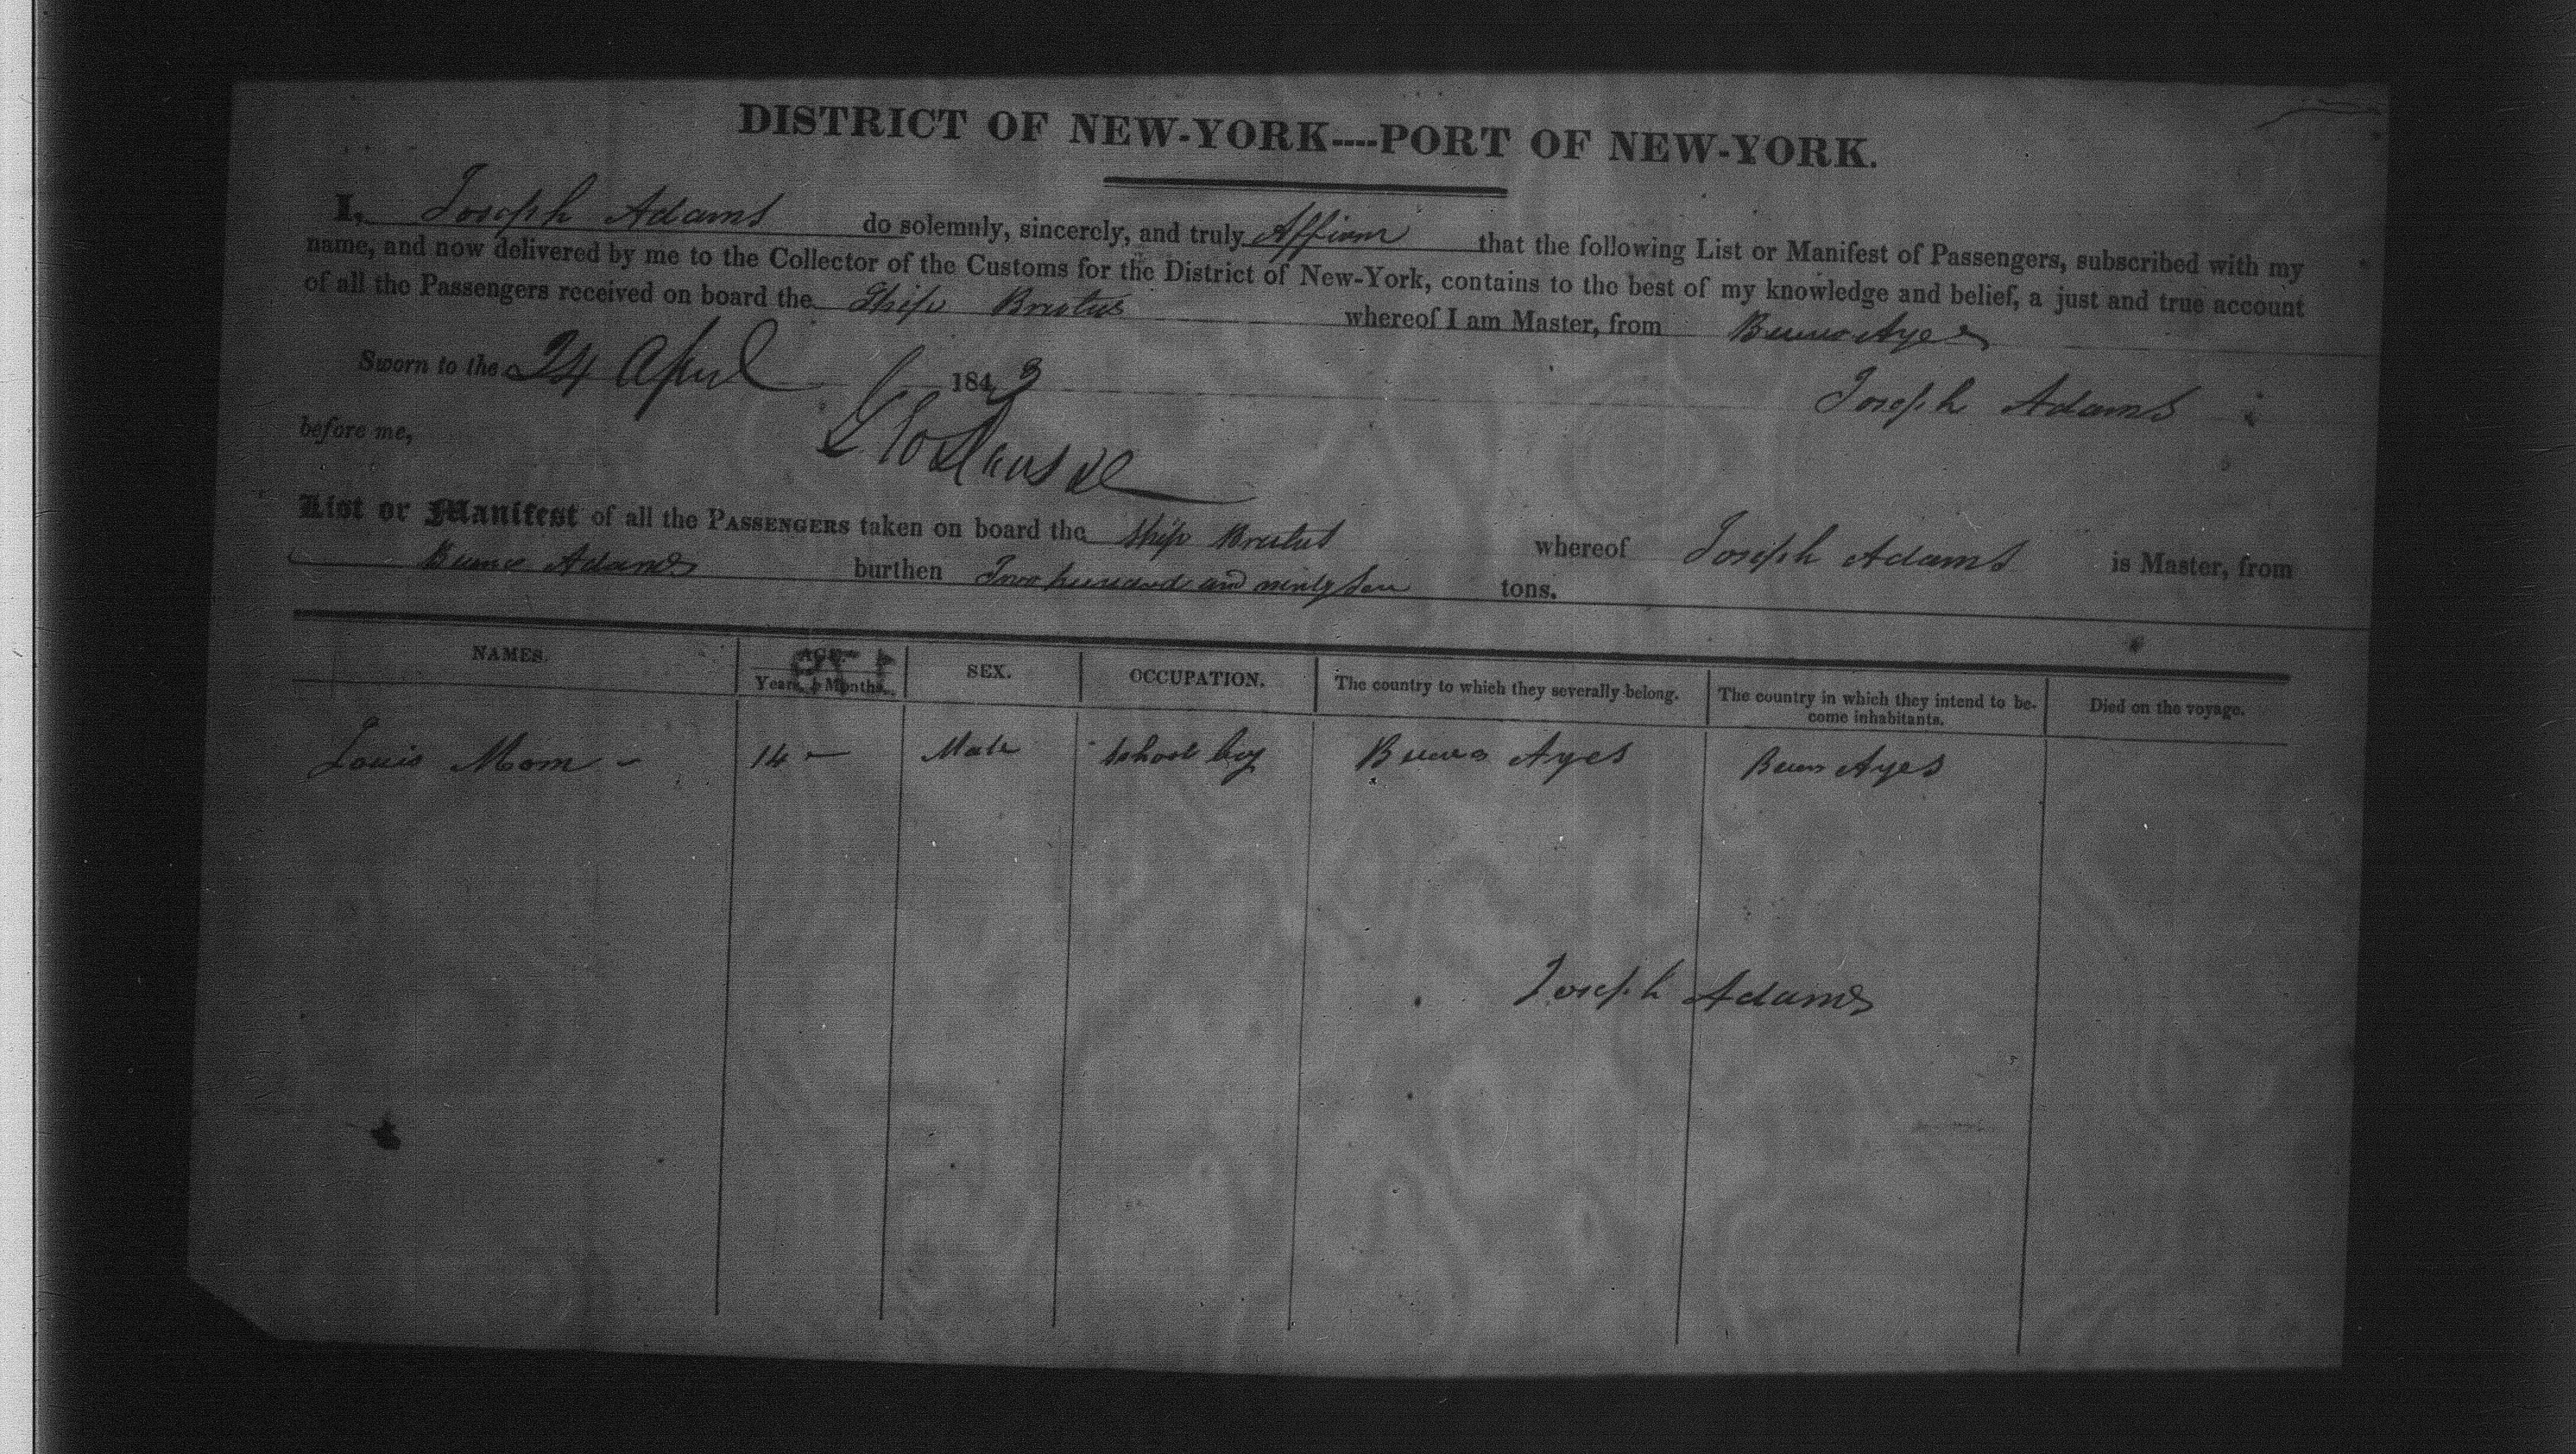 DISTRICT OF NEW-YORK----PORT OF NEW-YORK.
I, Joseph Adams do solemnly, sincerely, and truly Affirm that the following List or Manifest of Passengers, subscribed with my
name, and now delivered by me to the Collector of the Customs for the District of New-York, contains to the best of my knowledge and belief, a just and true account
of all the Passengers received on board the Ship Brutus whereof I am Master, from Bueno Ayes
Sworn to the 24 April 1843
Joseph Adams
before me,
List or Manifest of all the PASSENGERS taken on board the Ship Brutus whereof Joseph Adams is Master, from
Bueno Adams burthen Two hundred and ninety tons.
NAMES. AGE. SEX. OCCUPATION. The country to which they severally belong. The country in which they intend to be- Died on the voyage.
Years. Months. come inhabitants.
Louis Mom - 14 - Male School boy Buenos Ayes Buenos Ayes
Joseph Adams